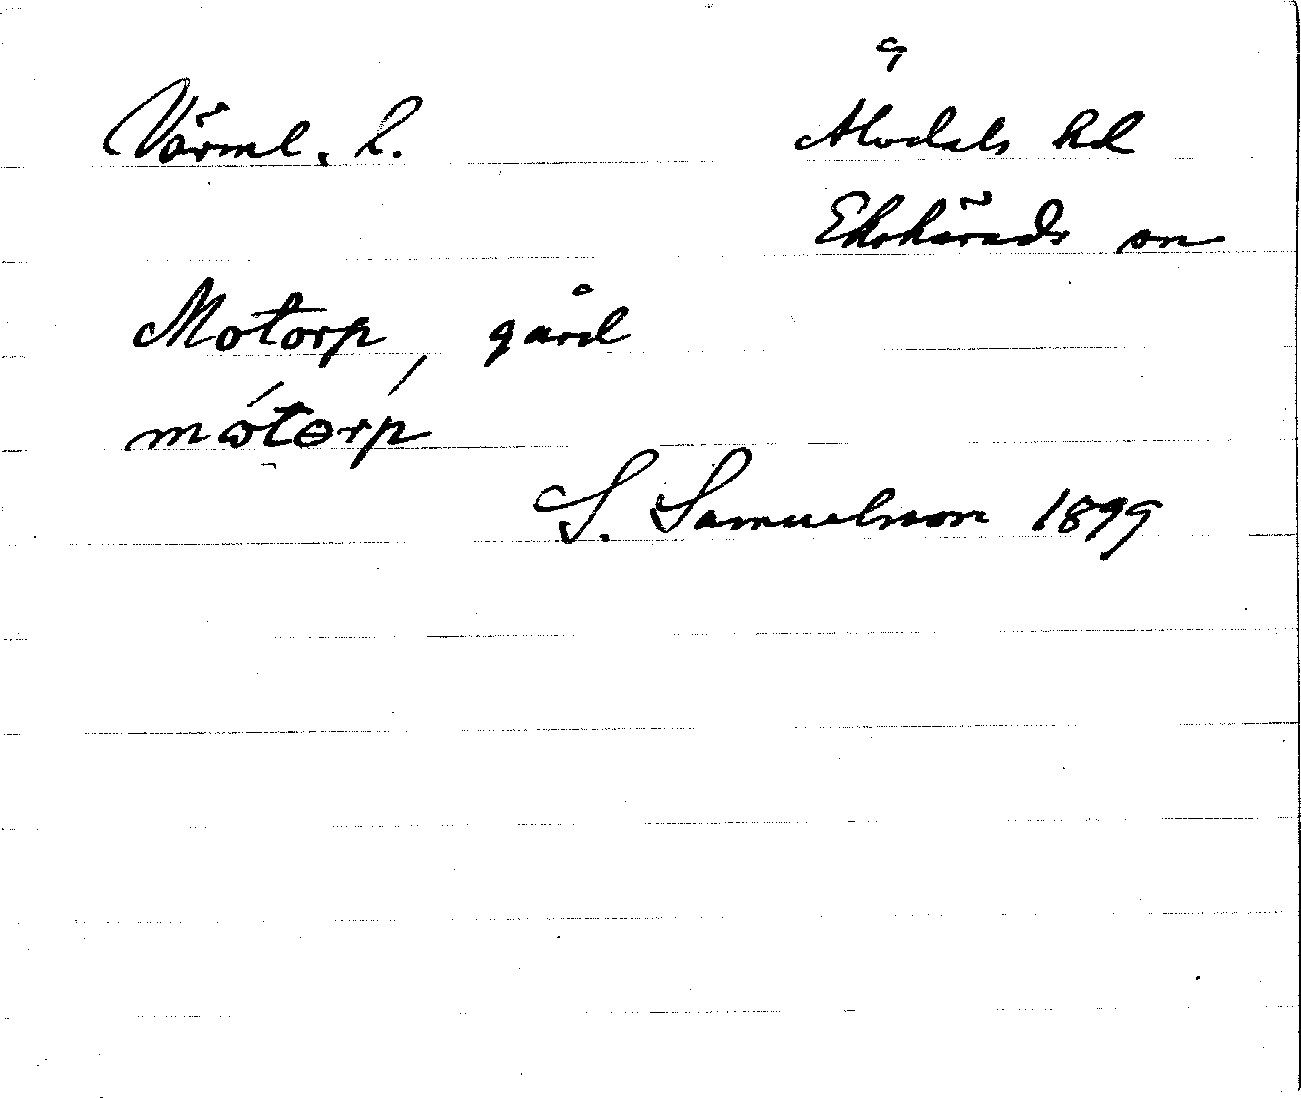 Värml. l. Älvdals hd
Ekshärads sn
Motorp, gård
mótorp
S. Samuelsson 1899